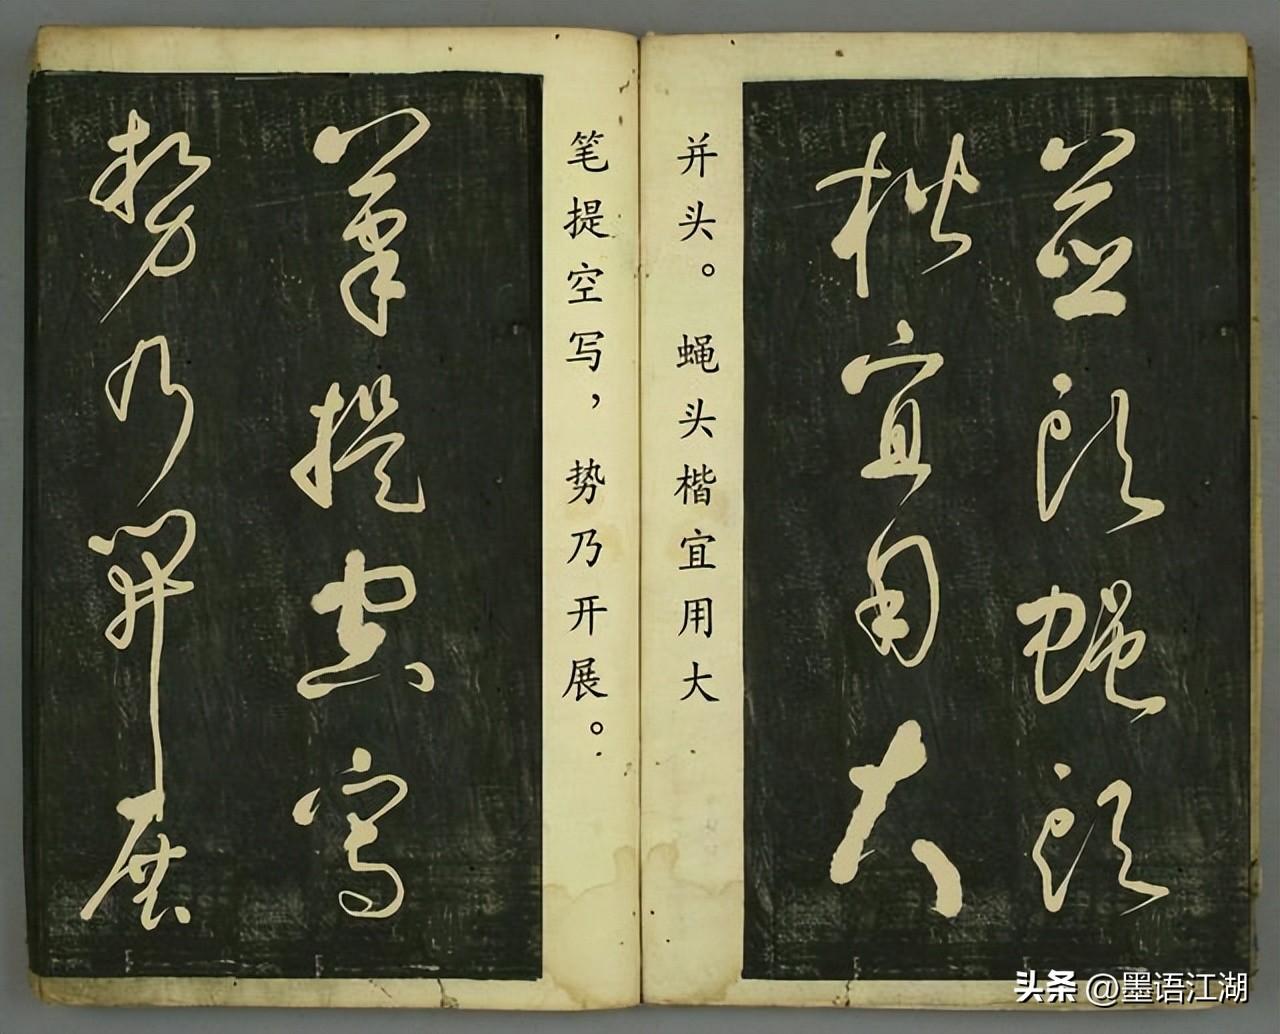 並頭蠅頭
楷宜用大
并头。蝇头楷宜用大
笔提空写，势乃开展。
筆提空寫
勢乃開展
头条 @墨语江湖